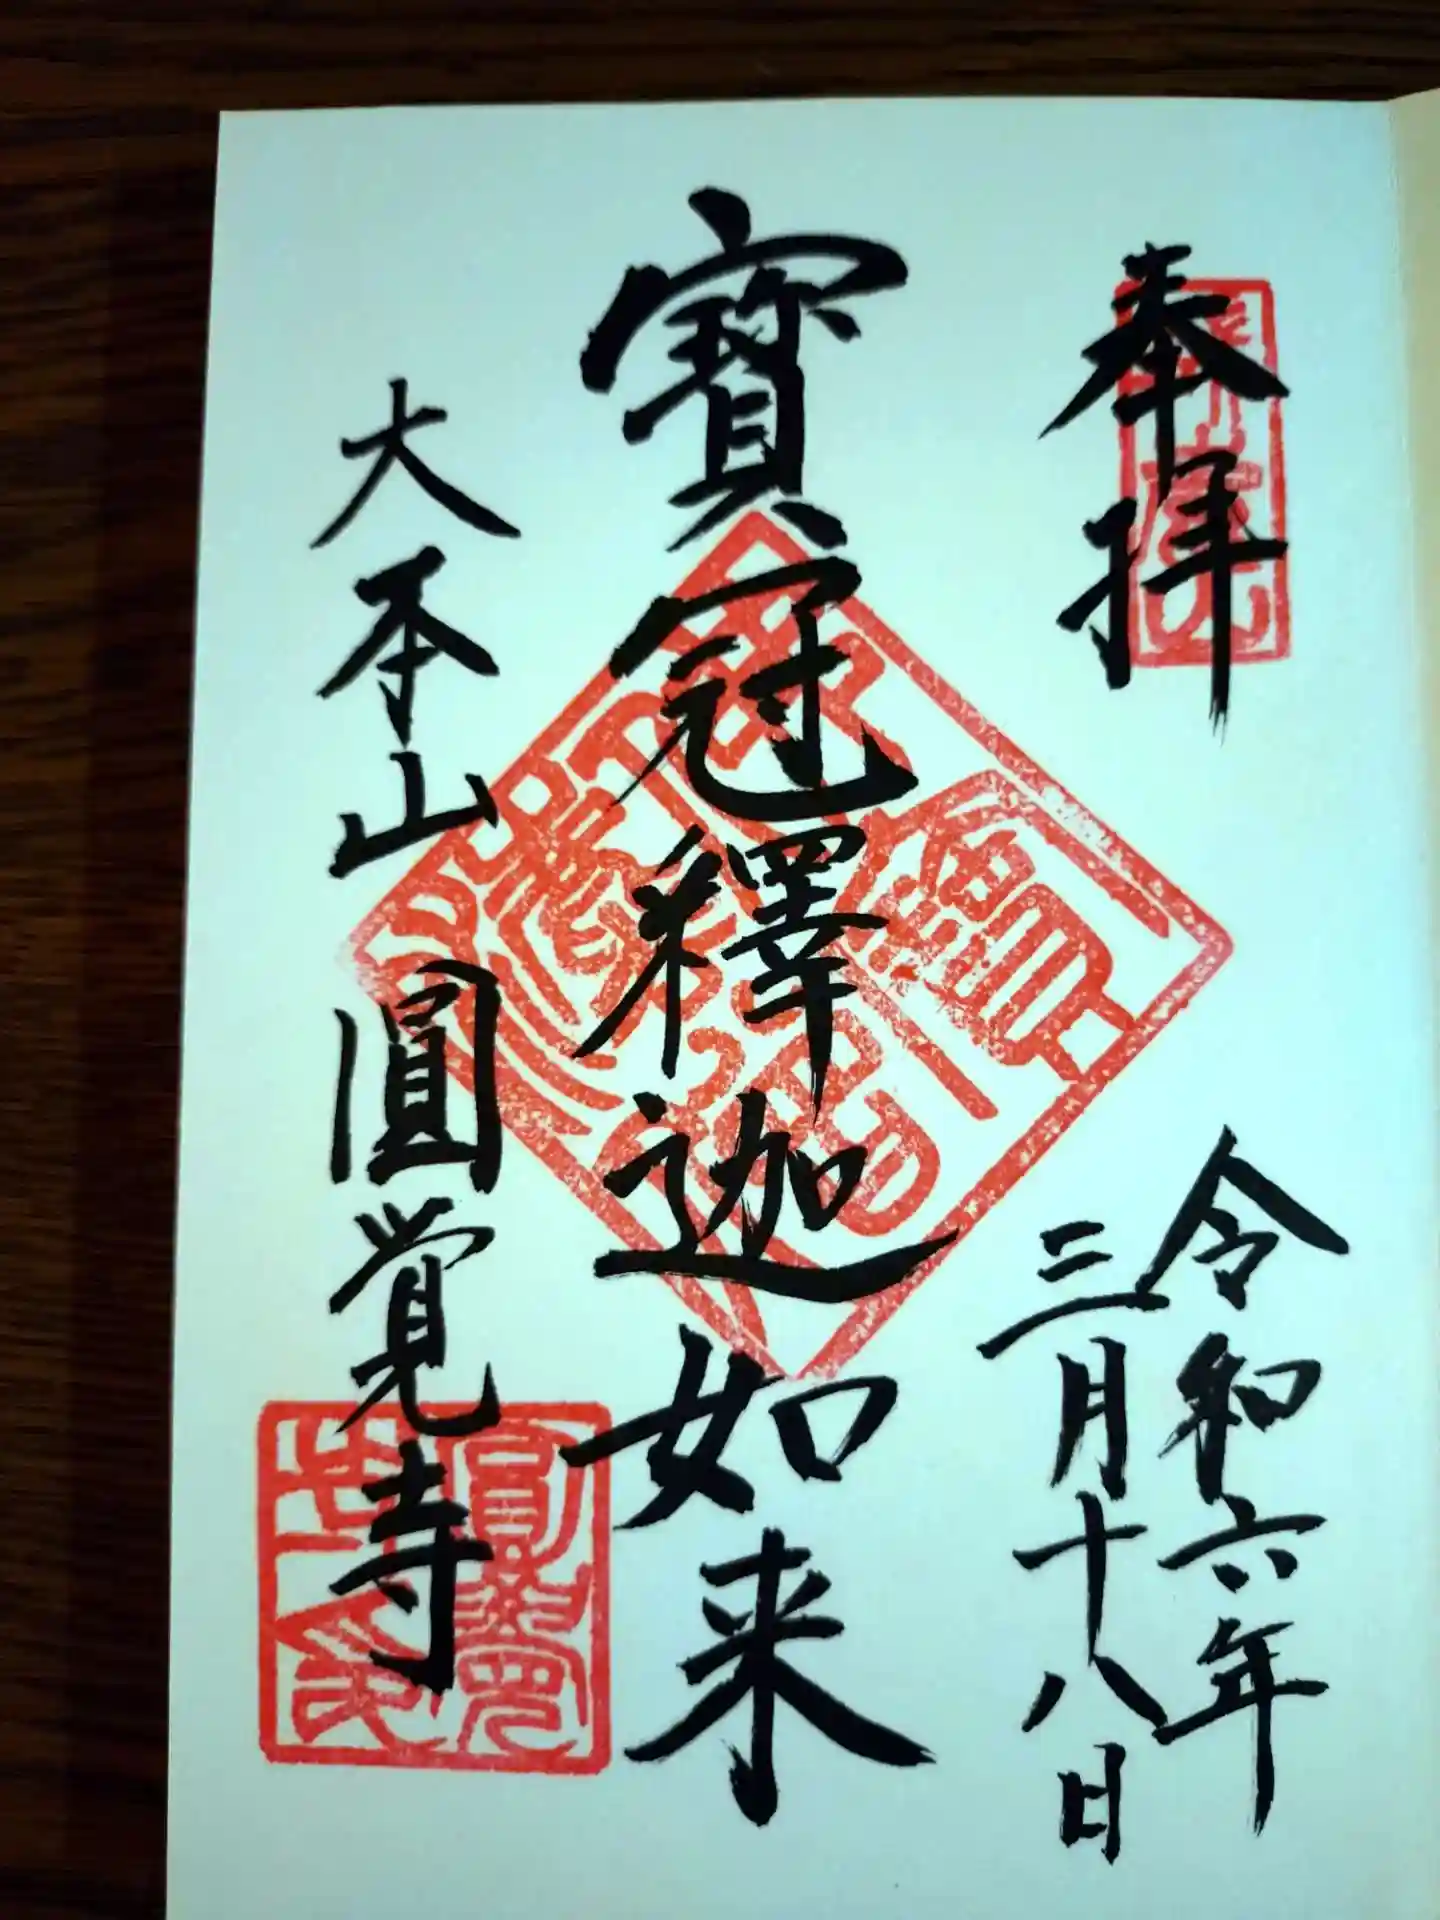 奉拝
令和六年
三月十八日
寳冠釋迦如来
大本山圓覚寺
佛法僧寳